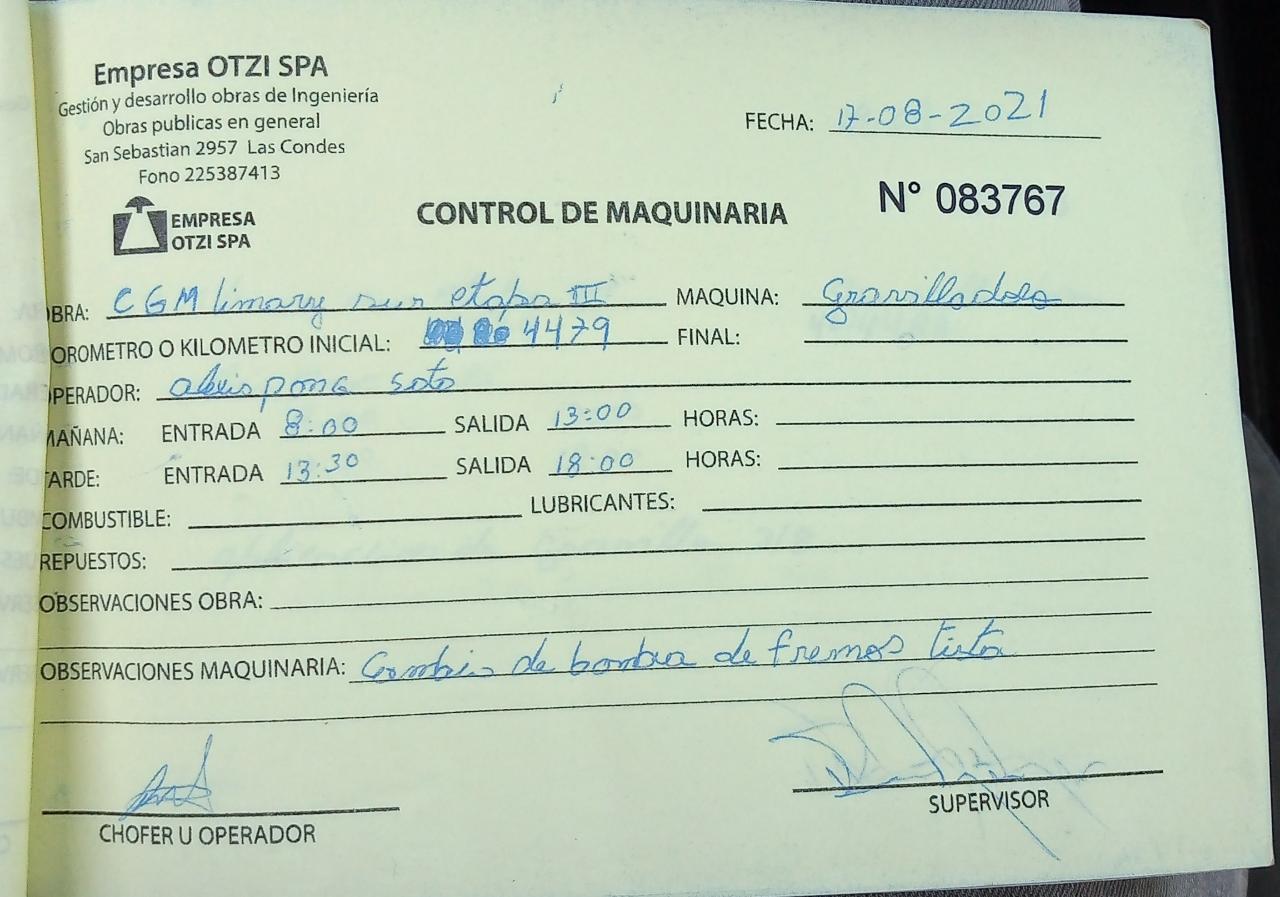 Empresa OTZI SPA
Gestión y desarrollo obras de Ingeniería
Obras publicas en general
San Sebastian 2957 Las Condes
Fono 225387413
EMPRESA
OTZI SPA
FECHA: 17-08-2021
CONTROL DE MAQUINARIA
N° 083767
OBRA: CGM limary sur etapa III MAQUINA: Gravilladora
OROMETRO O KILOMETRO INICIAL: 4479 FINAL:
OPERADOR: alexis pona soto
MAÑANA: ENTRADA 8:00 SALIDA 13:00 HORAS:
TARDE: ENTRADA 13:30 SALIDA 18:00 HORAS:
COMBUSTIBLE: LUBRICANTES:
REPUESTOS:
OBSERVACIONES OBRA:
OBSERVACIONES MAQUINARIA: Cambio de bomba de frenos lista
CHOFER U OPERADOR
SUPERVISOR